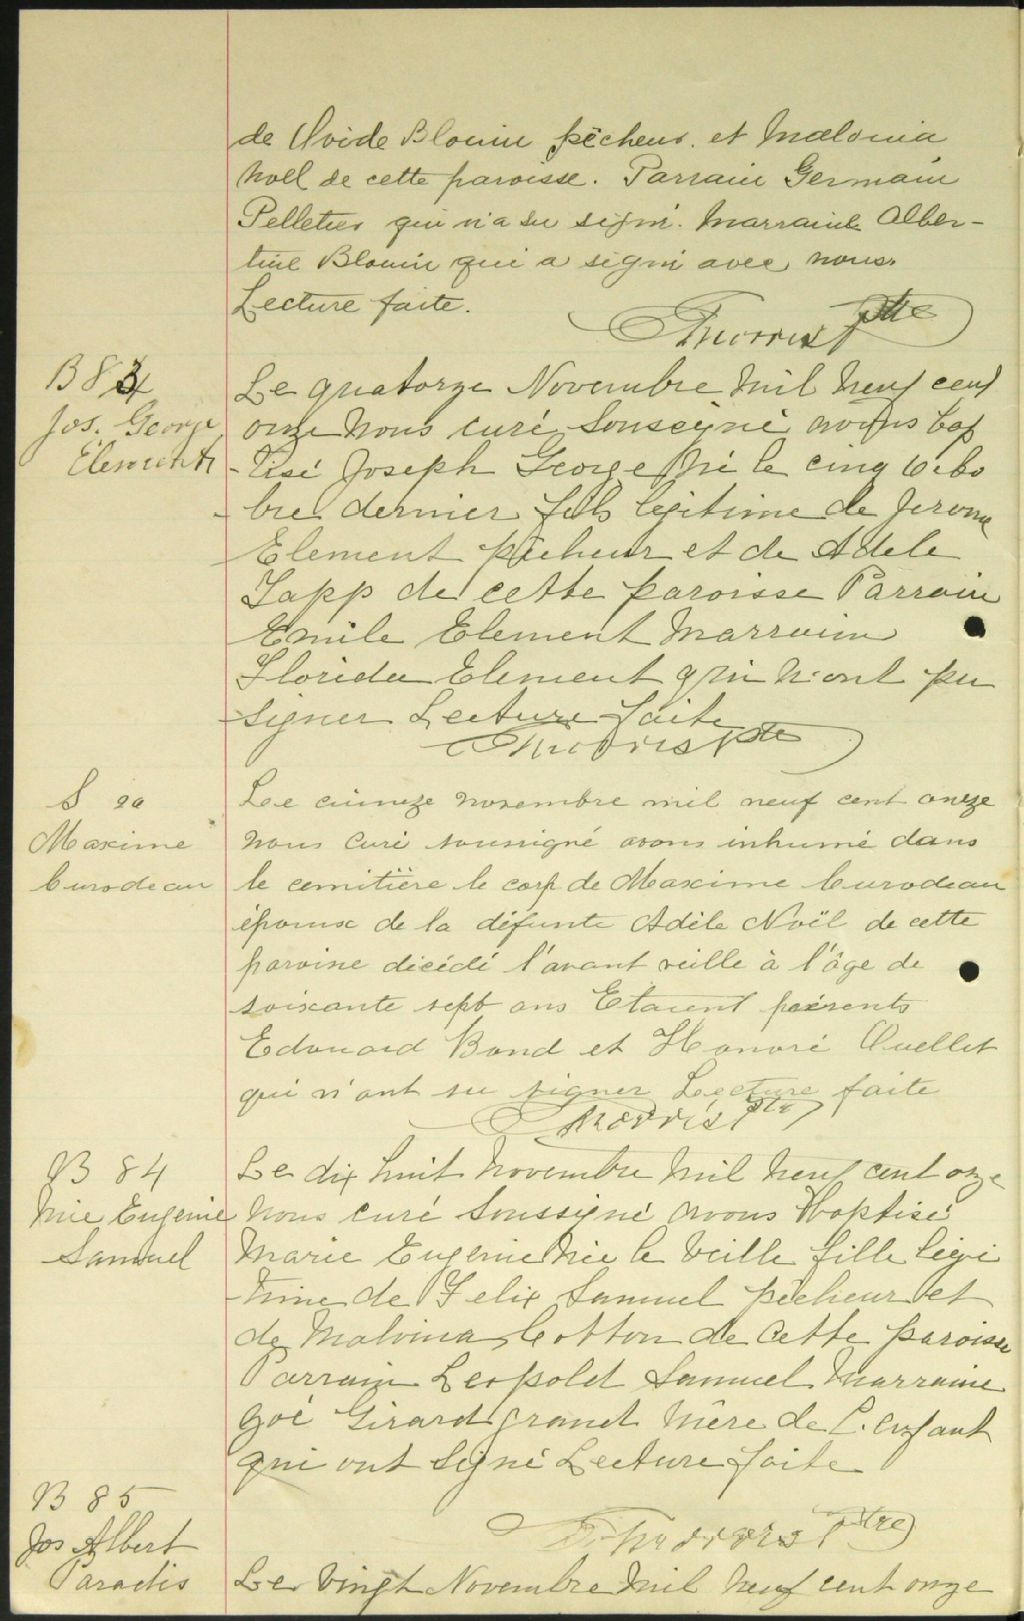 de Ovide Blouin pêcheur. et Malonia
Noel de cette paroisse. Parrain Germain
Pelletier qui n'a su signé. Marraine Alber-
tine Blouin qui a signé avec nous.
Lecture faite.
Morris Ptre
B 84
Jos. George
Element
Le quatorze Novembre mil neuf cent
onze Nous curé Sousigné avons bap
-tisé Joseph George Né le cinq octo
-bre dernier fils légitime de Jerome
Element pêcheur et de Adele
Japp de cette paroisse Parrain
Emile Element Marraine
Florida Element qui n'ont pu
signer Lecture faite
Morris Ptre
S 20
Maxime
Curodeau
Le quinze novembre mil neuf cent onze
nous curé soussigné avons inhumé dans
le cemitière le corp de Maxime Curodeau
époux de la défunte Adèle Noël de cette
paroisse décédé l'avant veille à l'âge de
soixante sept ans Etaient présents
Edouard Bond et Honoré Ouellet
qui n'ont su signer Lecture faite
Morris Ptre
B 84
Mie Eugenie
Samuel
Le dix huit Novembre mil neuf cent onze
Nous curé Soussigné avons Baptisé
Marie Eugenie Née le veille fille légi
-time de Felix Samuel pêcheur et
de Malvina Cotton de Cette paroisse
Parrain Leopold Samuel Marraine
Zoé Girard grand Mère de L'enfant
qui ont Signé Lecture faite
Morris Ptre
B 85
Jos Albert
Paradis
Le vingt Novembre Mil Neuf cent onze